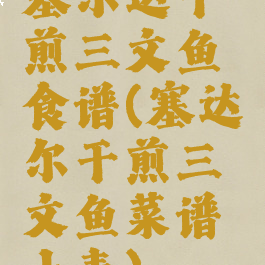 塞尔达干
煎三文鱼
食谱(塞达
尔干煎三
文鱼菜谱